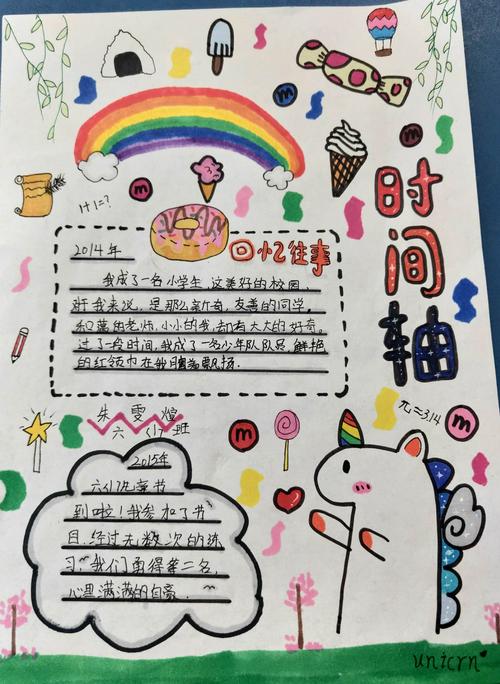 时间轴
1+1=?
m
m
m
回忆往事
2014年
我成了一名小学生,这美好的校园,
对于我来说,是那么新奇,友善的同学
和蔼的老师,小小的我,却有大大的好奇。
过了一段时间,我成了一名少年队队员,鲜艳
的红领巾在我胸前飘扬.
朱雯煊
六〈17班
π=3.14
m
m
2015年
六一儿童节
到啦!我参加了节
目,经过无数次的练
习,我们勇得第二名,
心里满满的自豪.
unicrn